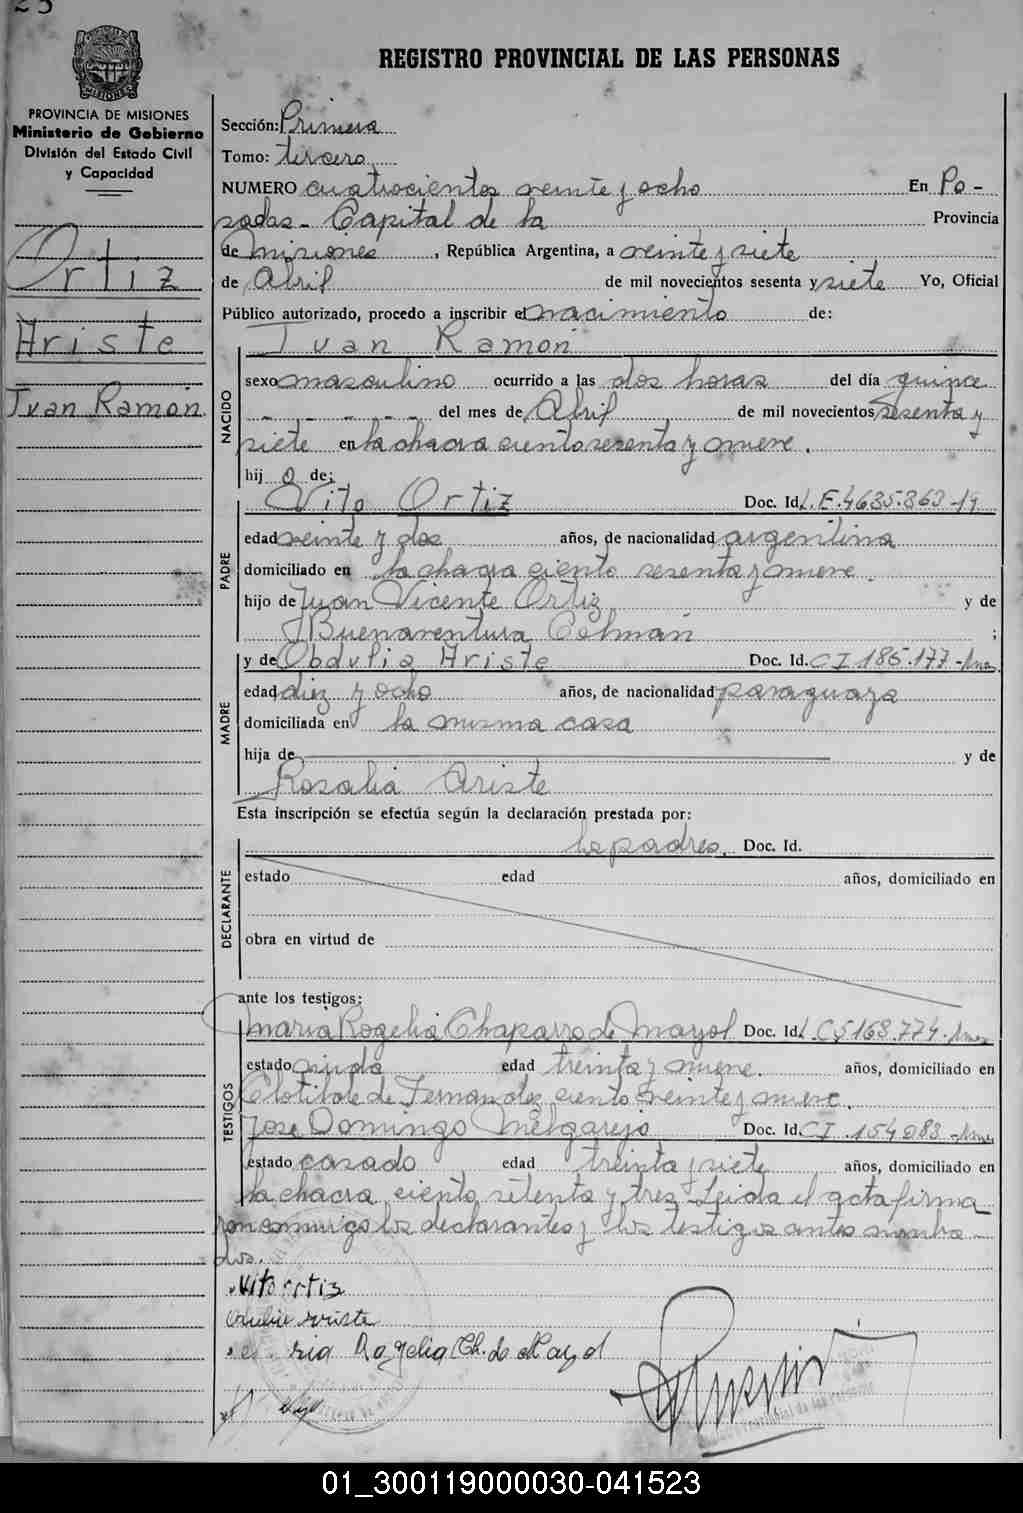 25
REGISTRO PROVINCIAL DE LAS PERSONAS
PROVINCIA DE MISIONES
Ministerio de Gobierno
División del Estado Civil
y Capacidad
Ortiz
Ariste
Ivan Ramon
Sección: Primera
Tomo: tercero
NUMERO cuatrocientos veinte y ocho En Po-
sadas - Capital de la Provincia
de Misiones, República Argentina, a veinte y siete
de Abril de mil novecientos sesenta y siete Yo, Oficial
Público autorizado, procedo a inscribir el nacimiento de:
Ivan Ramon
NACIDO
sexo masculino ocurrido a las dos horas del día quince
- - - - - - del mes de Abril de mil novecientos sesenta y
siete en la chacra ciento sesenta y nueve.
hijo de:
Vito Ortiz Doc. Id. L.E. 4635.863-
PADRE
edad veinte y dos años, de nacionalidad argentina
domiciliado en la chacra ciento sesenta y nueve.
hijo de Juan Vicente Ortiz y de
Buenaventura Colman ;
y de Obdulia Ariste Doc. Id. CI 185.177-
MADRE
edad diez y ocho años, de nacionalidad paraguaya
domiciliada en la misma casa
hija de y de
Rosalia Ariste
Esta inscripción se efectúa según la declaración prestada por:
los padres. Doc. Id.
DECLARANTE
estado edad años, domiciliado en
obra en virtud de
ante los testigos:
TESTIGOS
Maria Rogelia Chaparro de Mayol Doc. Id. 168.774-
estado viuda edad treinta y nueve. años, domiciliado en
Clotilde de Fernandez ciento veinte y nueve.
Jose Domingo Melgarejo Doc. Id. CI 154.083-
estado casado edad treinta y siete años, domiciliado en
la chacra ciento setenta y tres. Leida el acta firma
ron conmigo los declarantes y los testigos antes nombra-
dos.
Vito ortiz
ariste
Rogelia Ch. de Mayol
01_300119000030-041523